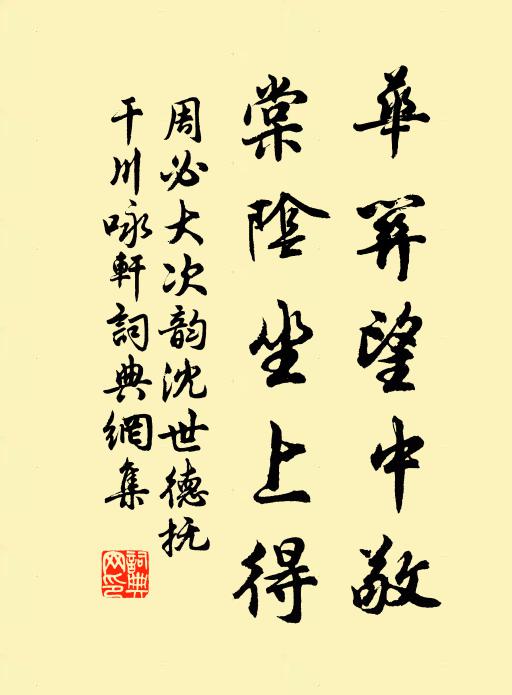 華開望中敬
棠陰坐上得
周必大次韵沈世德抚
干川咏軒詞典網集
詞典网印